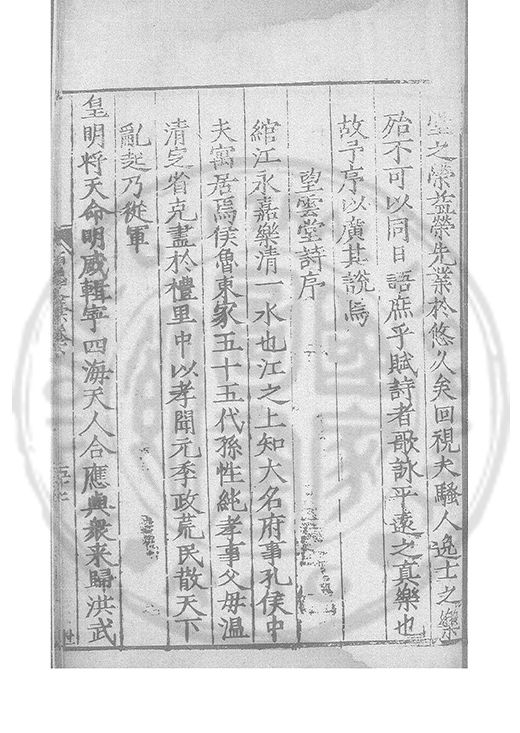 堂之榮益榮先業於悠久矣回視夫騷人逸士之樂
殆不可以同日語庶乎賦詩者歌詠平遠之真樂也
故予序以廣其說焉
望雲堂詩序
綰江永嘉樂清一水也江之上知大名府事孔侯中
夫寓居焉侯魯東家五十五代孫性純孝事父母溫
清定省克盡於禮里中以孝聞元季政荒民散天下
亂起乃從軍
皇明將天命明威輯寧四海天人合應與衆来歸洪武